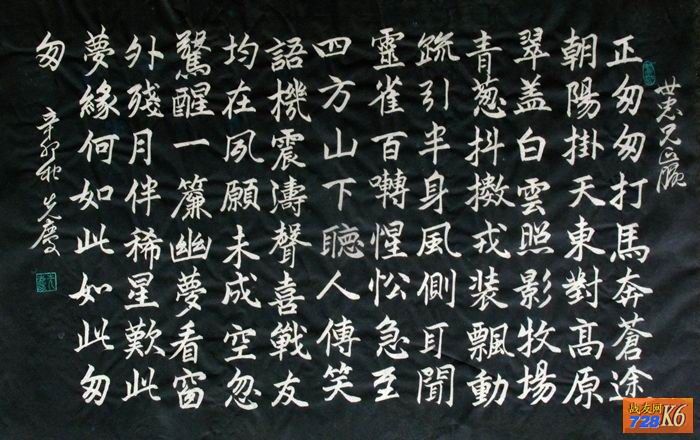 世忠兄正
正匆匆打馬奔蒼途
朝陽掛天東對高原
翠盖白雲照影牧場
青葱抖擻戎装飄動
疏引半身風側耳聞
靈雀百囀惺忪急至
四方山下聽人傳笑
語機震濤聲喜戰友
均在夙願未成空忽
驚醒一簾幽夢看窗
外殘月伴稀星歎此
夢緣何如此如此匆
匆
辛卯秋先慶
战友网
728 K6